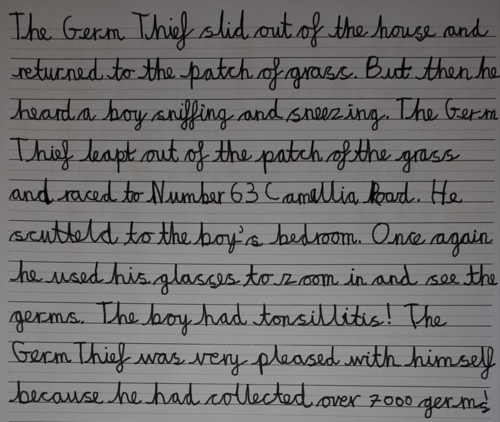 The Germ Thief slid out of the house and
returned to the patch of grass. But then he
heard a boy sniffing and sneezing. The Germ
Thief leapt out of the patch of the grass
and raced to Number 63 Camellia Road. He
scutteld to the boy's bedroom. Once again
he used his glasses to zoom in and see the
germs. The boy had tonsillitis! The
Germ Thief was very pleased with himself
because he had collected over 7000 germs!